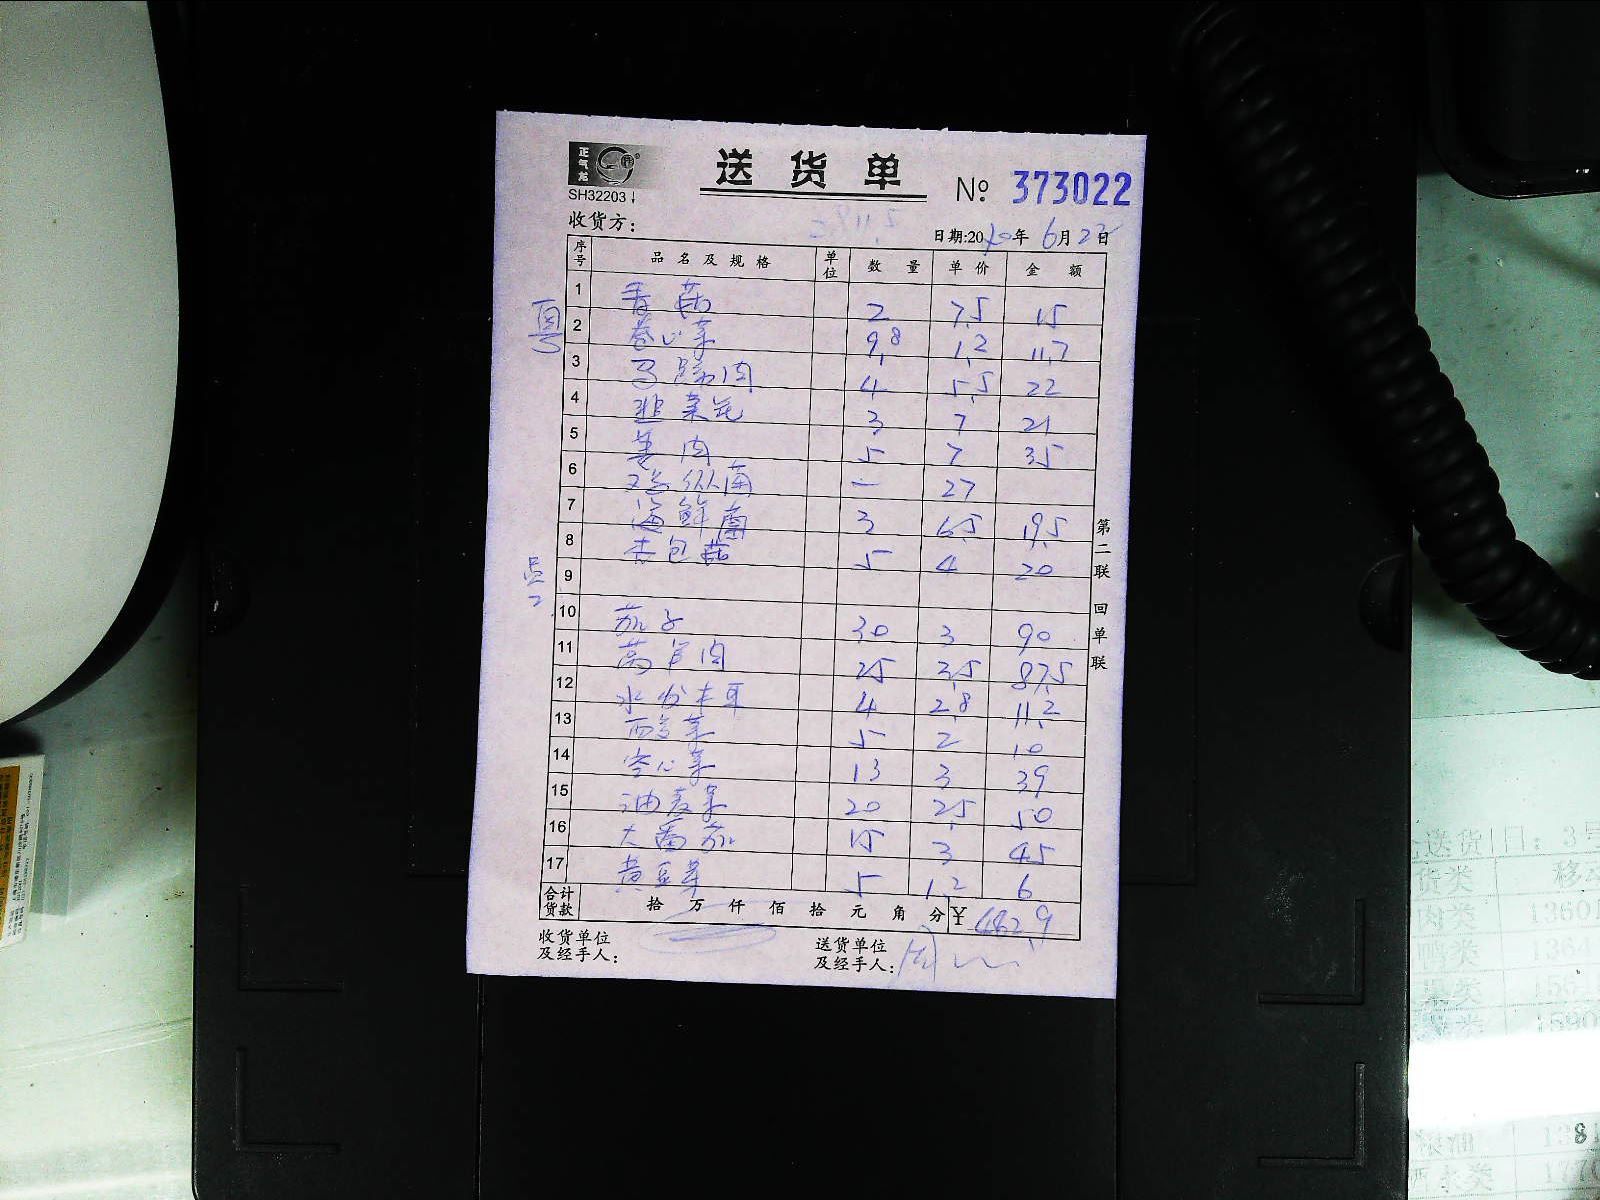 正气龙
SH32203
送货单
№ 373022
收货方：
日期:2020年 6月22日
序号 品名及规格 单位 数量 单价 金额
1 香菇 2 7.5 15
2 卷心菜 9.8 1.2 11.7
3 马蹄肉 4 5.5 22
4 韭菜花 3 7 21
5 姜肉 5 7 35
6 鸡枞菌 一 27
7 海鲜菌 3 6.5 19.5
8 杏包菇 5 4 20
9
10 茄子 30 3 90
11 莴笋肉 25 3.5 87.5
12 水发木耳 4 2.8 11.2
13 酸菜 5 2 10
14 空心菜 13 3 39
15 油麦菜 20 2.5 50
16 大番茄 15 3 45
17 黄豆芽 5 1.2 6
合计货款 拾 万 仟 佰 拾 元 角 分 ¥ 482.9
收货单位及经手人：
送货单位及经手人：周
第二联 回单联
粤
送货 日：3号
货类 移动
鸭类
粮油